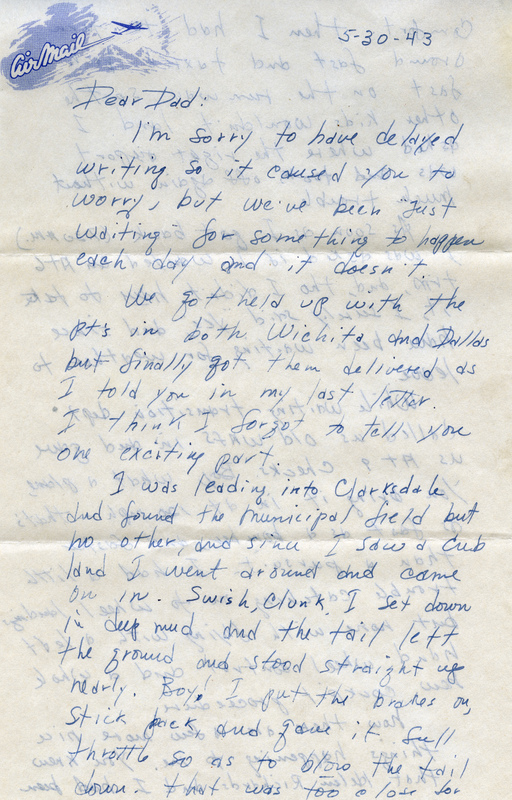 Air Mail
5-30-43
Dear Dad:
I'm sorry to have delayed
writing so it caused you to
worry, but we've been just
waiting for something to happen
each day and it doesn't
We got held up with the
pt's in both Wichita and Dallas
but finally got them delivered as
I told you in my last letter.
I think I forgot to tell you
one exciting part.
I was leading into Clarksdale
and found the municipal field but
no other, and since I saw a Cub
land I went around and came
on in. Swish, Clunk, I set down
in deep mud and the tail left
the ground and stood straight up
nearly. Boy! I put the brakes on,
stick back and gave it full
throttle so as to blow the tail
down. That was too close for